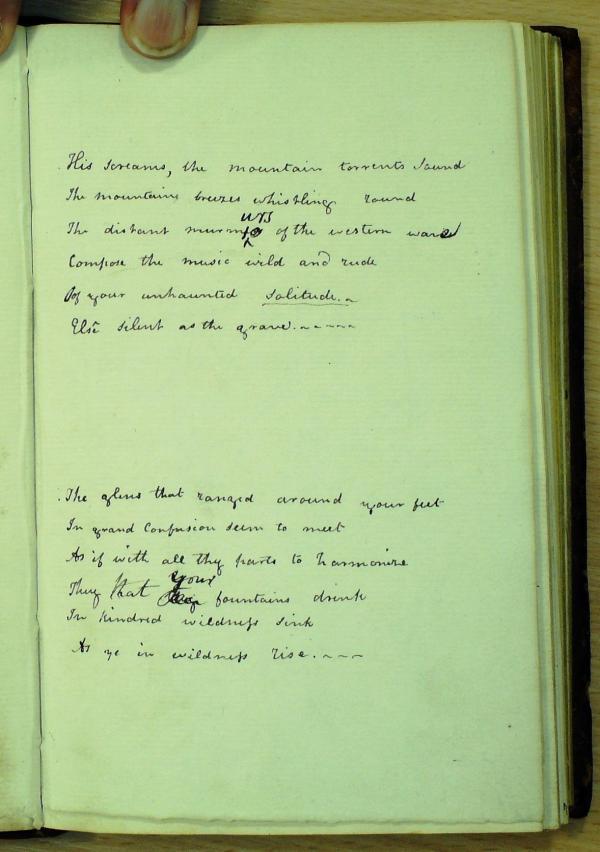 His screams, the mountain torrents sound
The mountains breezes whistling round
The distant murmurs of the western waves
Compose the music wild and rude
Of your unhaunted solitude.~
Else silent as the grave.~~~~~
The glens that ranged around your feet
In grand Confusion seem to meet
As if with all thy parts to harmonize
They that your fountains drink
In kindred wildness sink
As ye in wildness rise.~~~